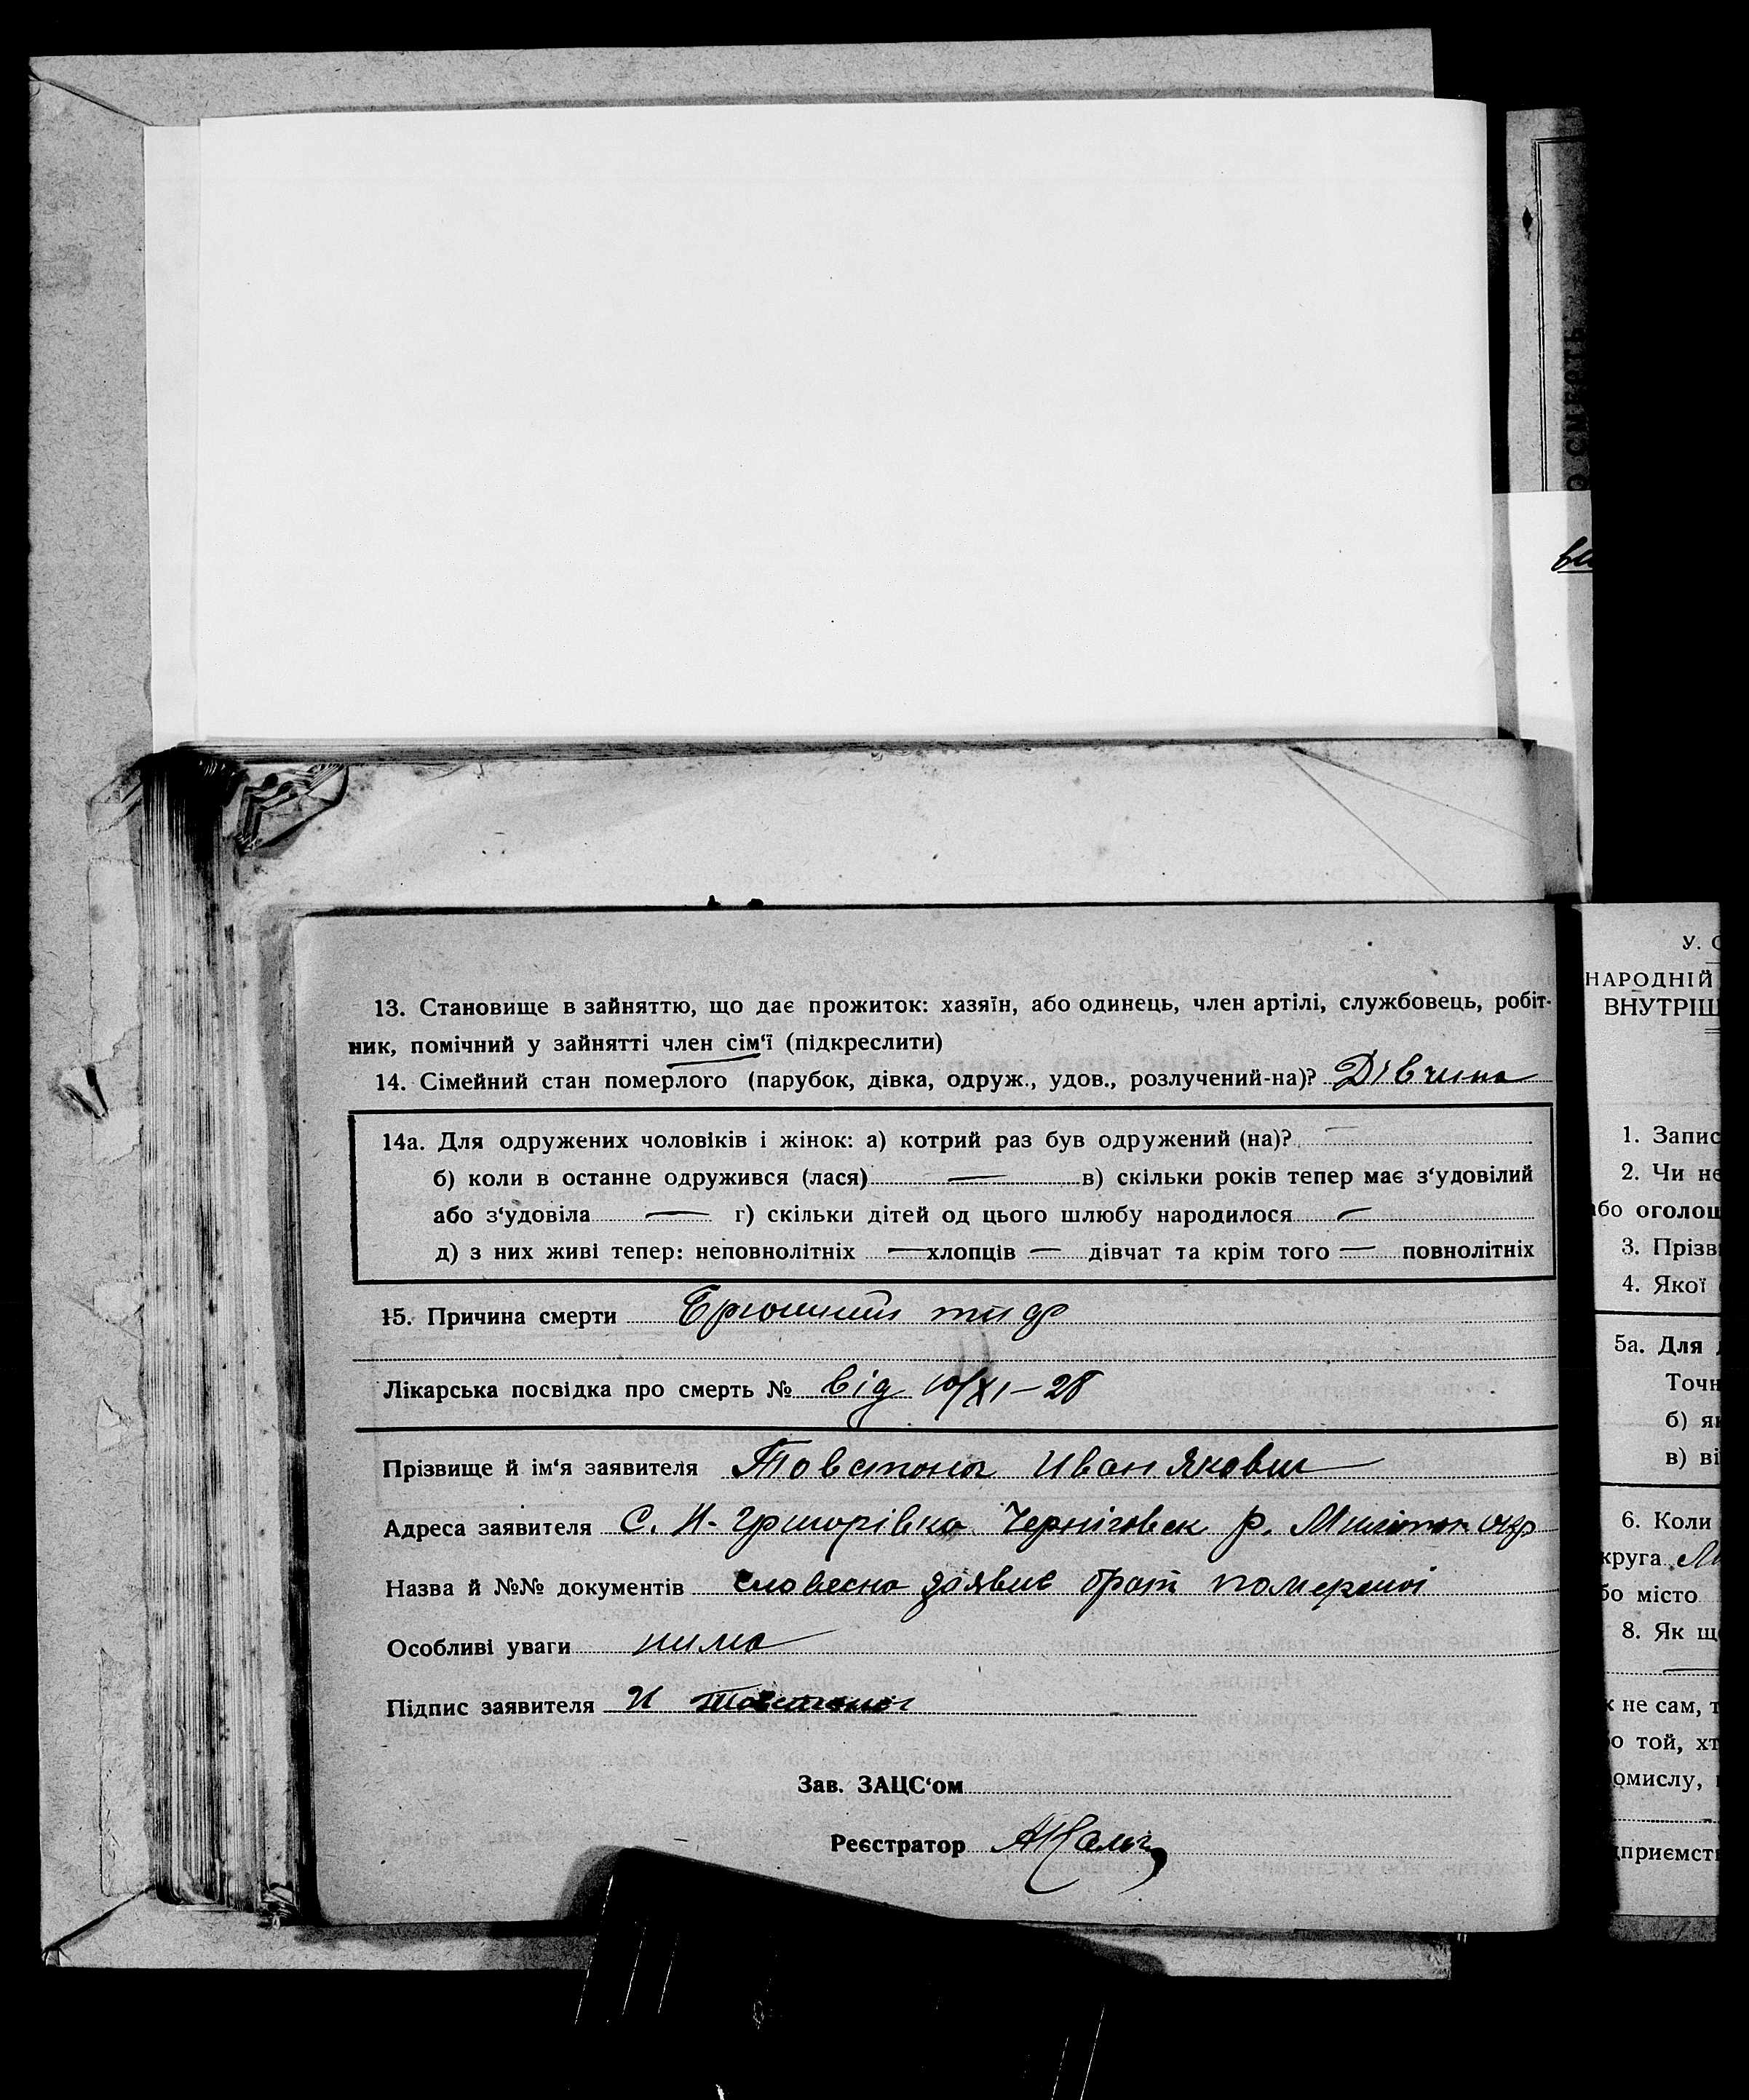 13. Становище в зайняттю, що дає прожиток: хазяїн, або одинець, член артілі, службовець, робіт-
ник, помічний у зайнятті член сім‘ї (підкреслити)
14. Сімейний стан померлого (парубок, дівка, одруж., удов., розлучений-на)? Дівчина
14а. Для одружених чоловіків і жінок: а) котрий раз був одружений (на)? —
б) коли в останне одружився (лася) — в) скільки років тепер має з‘удовілий
або з‘удовіла — г) скільки дітей од цього шлюбу народилося —
д) з них живі тепер: неповнолітніх — хлопців — дівчат та крім того — повнолітніх
15. Причина смерти Брюшний тиф
Лікарська посвідка про смерть № від 10/XI–28
Прізвище й ім‘я заявителя Товстоног Иван Якович
Адреса заявителя С. Н-Григорівка Черніговск р. Мелітоп окр
Назва й №№ документів словесно заявив брат помершої
Особливі уваги нима
Підпис заявителя И Товстоног
Зав. ЗАЦС‘ом
Реєстратор
У. С
НАРОДНІЙ
ВНУТРІШ
1. Запис
2. Чи не
або оголош
3. Прізв
4. Якої
5а. Для
Точн
б) як
в) ві
6. Коли
круга
бо місто
8. Як що
к не сам, т
о той, хт
омислу,
дприємст
О СМЕРТЬ